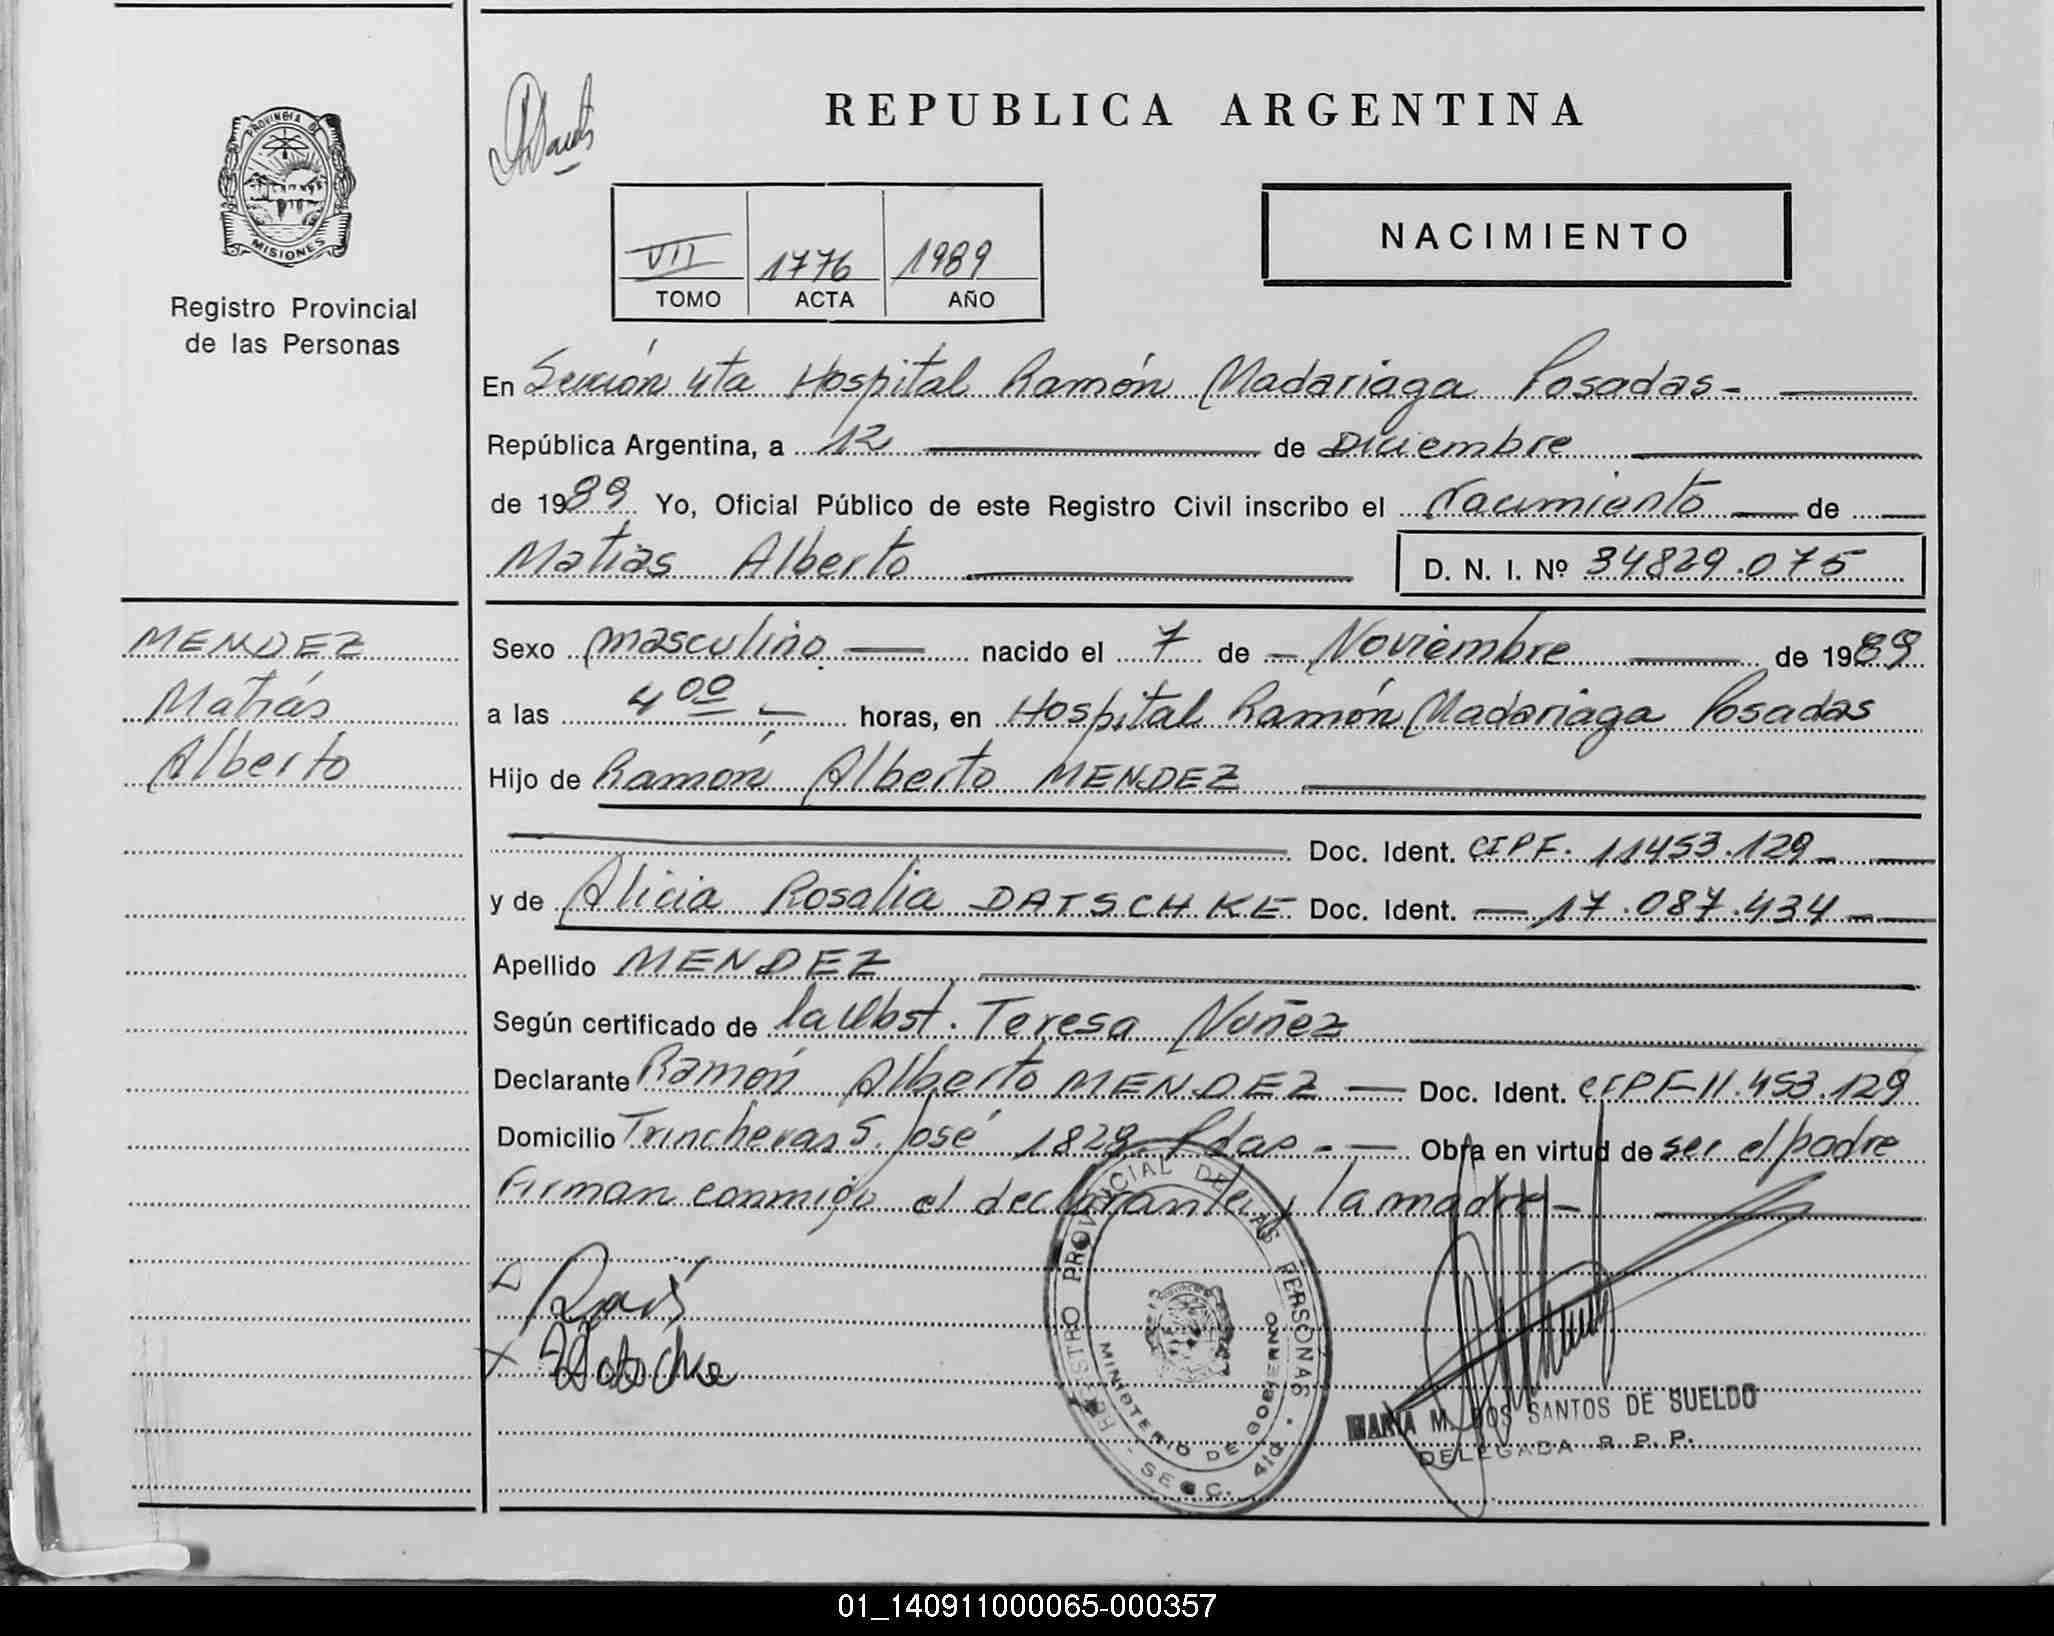 PROVINCIA DE
MISIONES
Registro Provincial
de las Personas
MENDEZ
Matías
Alberto
REPUBLICA ARGENTINA
NACIMIENTO
VII 1776 1989
TOMO ACTA AÑO
En Sección 4ta Hospital Ramón Madariaga Posadas-
República Argentina, a 12 de Diciembre
de 1989 Yo, Oficial Público de este Registro Civil inscribo el Nacimiento de
Matias Alberto D. N. I. Nº 34829.075
Sexo masculino nacido el 7 de Noviembre de 1989
a las 4 00 horas, en Hospital Ramón Madariaga Posadas
Hijo de Ramón Alberto MENDEZ
Doc. Ident. CIPF. 11453.129
y de Alicia Rosalia DATSCHKE Doc. Ident. 17.087.434
Apellido MENDEZ
Según certificado de la Obst. Teresa Nuñez
Declarante Ramón Alberto MENDEZ Doc. Ident. CIPF-11.453.129
Domicilio Trincheras S. José 1829 Pdas.- Obra en virtud de ser el padre
Firman conmigo el declarante y la madre-
REGISTRO PROVINCIAL DE LAS PERSONAS
MINISTERIO DE GOBIERNO
SECC. 4ta.
Datschke
MARIA M. DOS SANTOS DE SUELDO
DELEGADA R. P. P.
01_140911000065-000357